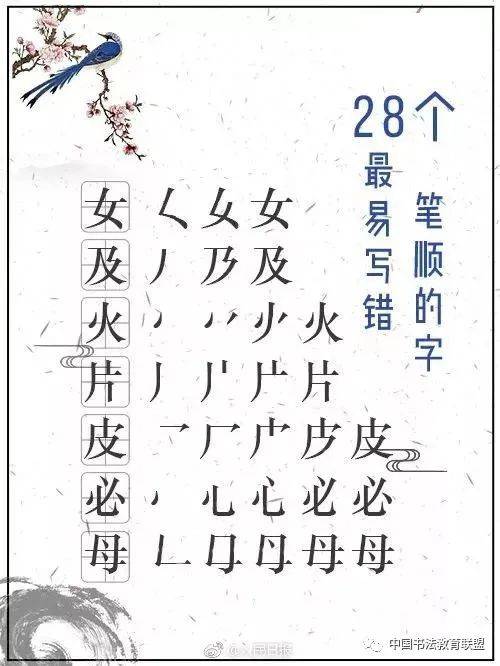 28个
最易写错
笔顺的字
女 く 女 女
及 丿 乃 及
火 火
片 丿 片
皮 乛 厂 皮
必 心 必 必
母 𠃊 母 母
@人民日报
中国书法教育联盟